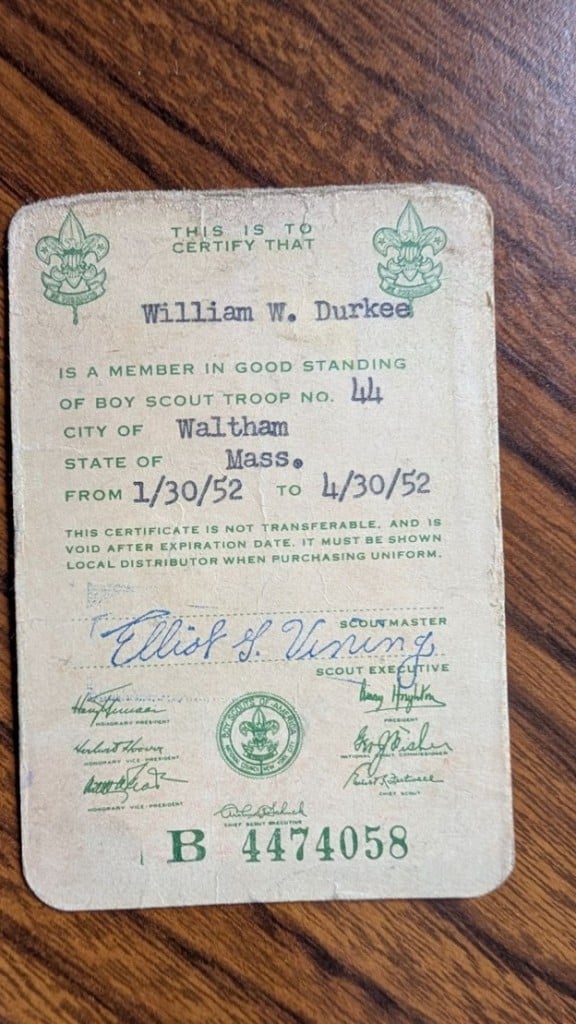 THIS IS TO
CERTIFY THAT
William W. Durkee
IS A MEMBER IN GOOD STANDING
OF BOY SCOUT TROOP NO. 44
CITY OF Waltham
STATE OF Mass.
FROM 1/30/52 TO 4/30/52
THIS CERTIFICATE IS NOT TRANSFERABLE, AND IS
VOID AFTER EXPIRATION DATE. IT MUST BE SHOWN
LOCAL DISTRIBUTOR WHEN PURCHASING UNIFORM.
SCOUTMASTER
Elliot S. Vining
SCOUT EXECUTIVE
Harry Truman
HONORARY PRESIDENT
PRESIDENT
Herbert Hoover
HONORARY VICE-PRESIDENT
NATIONAL SCOUT COMMISSIONER
HONORARY VICE-PRESIDENT
CHIEF SCOUT
BOY SCOUTS OF AMERICA
CHIEF SCOUT EXECUTIVE
B 4474058